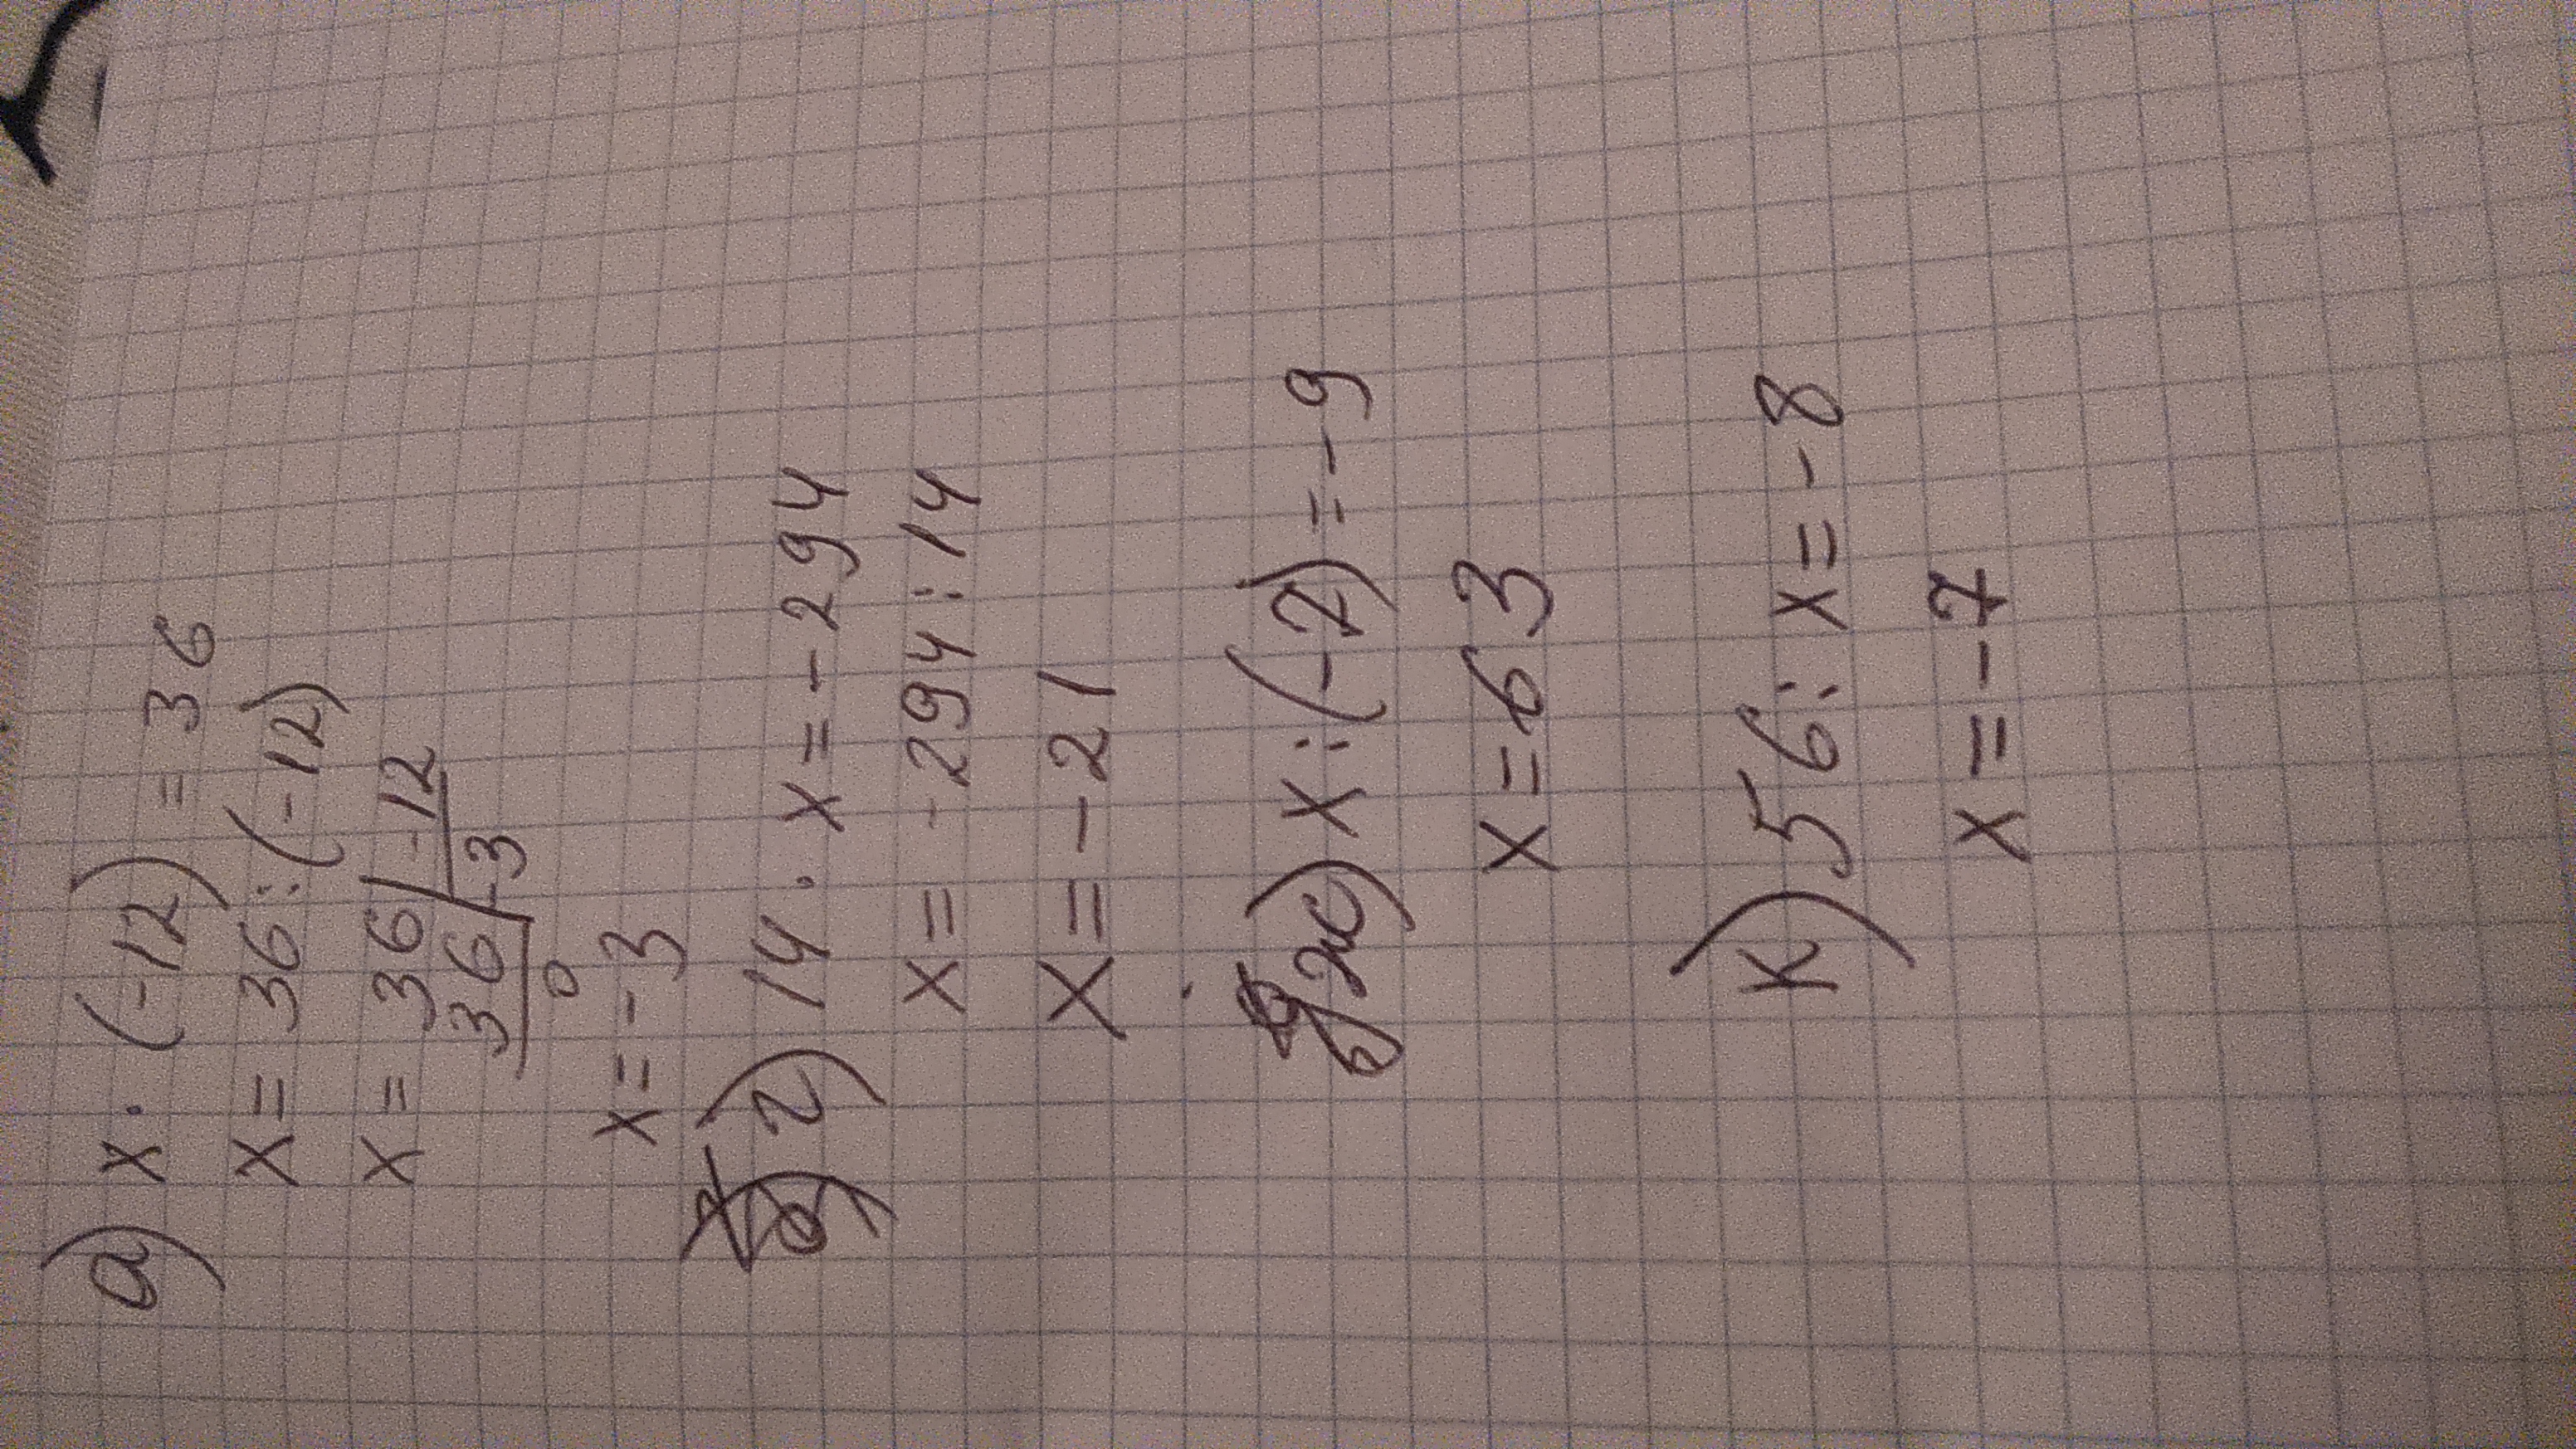 а) x · (-12) = 36
x = 36 : (-12)
x = 36 | -12
36 | -3
0
x = -3
г) 14 · x = -294
x = -294 : 14
x = -21
ж) x : (-7) = -9
x = 63
к) 56 : x = -8
x = -7